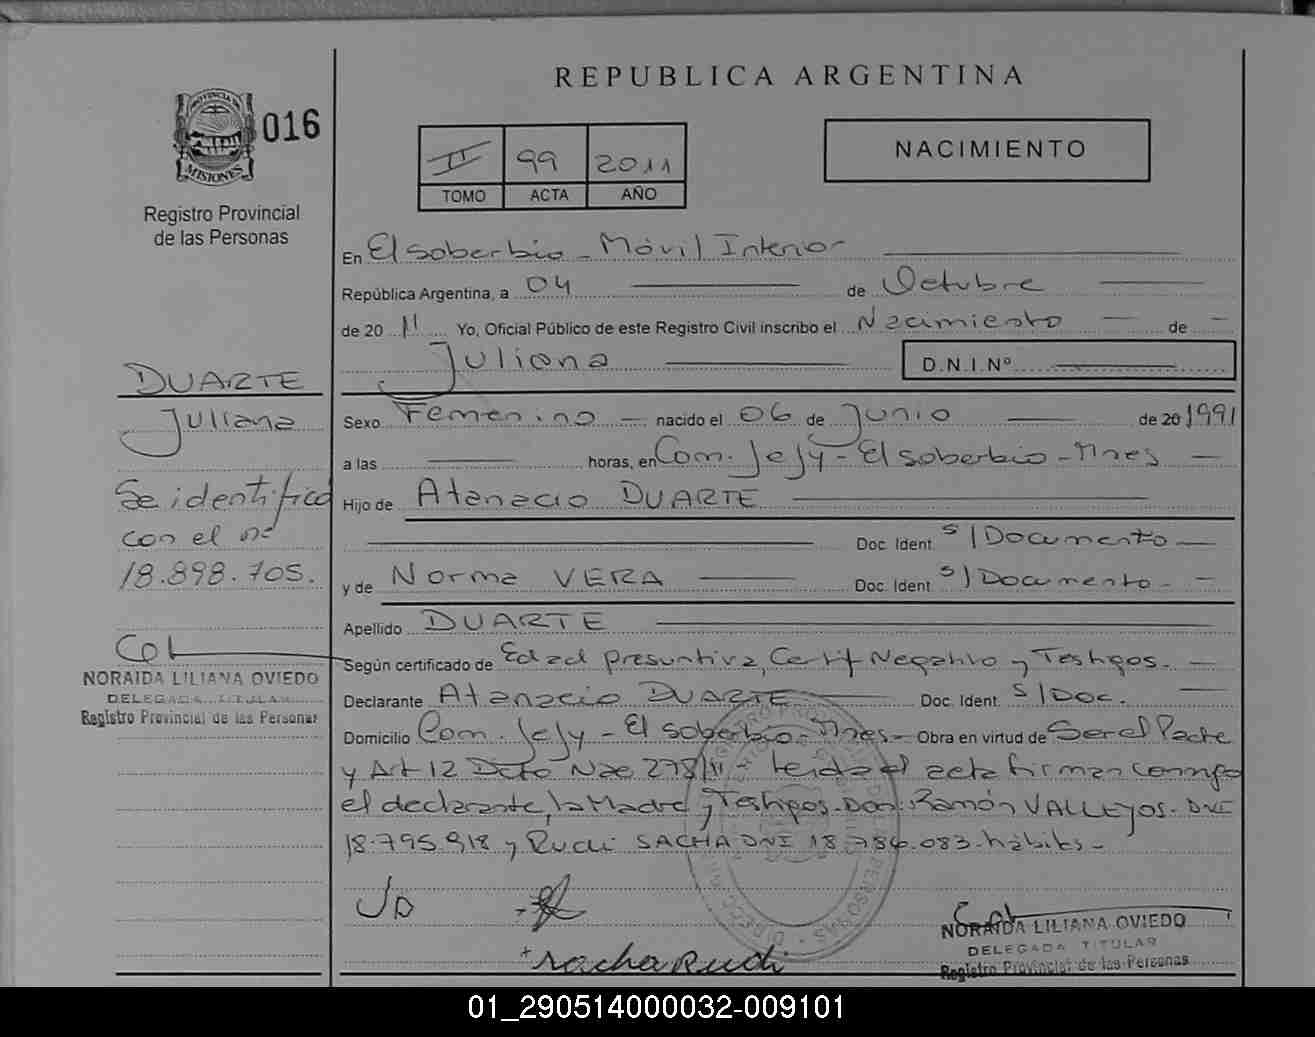 REPUBLICA ARGENTINA
PROVINCIA DE
MISIONES
016
Registro Provincial
de las Personas
II 99 2011
TOMO ACTA AÑO
NACIMIENTO
En El soberbio - Móvil Interior
República Argentina, a 04 de Octubre
de 20 11 Yo, Oficial Público de este Registro Civil inscribo el Nacimiento de
Juliana
D.N.I.Nº
DUARTE
Juliana
Se identificó
con el nº
18.898.705.
NORAIDA LILIANA OVIEDO
DELEGADA TITULAR
Registro Provincial de las Personas
Sexo Femenino nacido el 06 de Junio de 20 1991
a las horas, en Com. Jejy - El soberbio - Mnes
Hijo de Atanacio DUARTE
Doc. Ident. s/Documento
y de Norma VERA Doc. Ident. s/Documento.
Apellido DUARTE
Según certificado de Edad presuntiva, Certif Negativo y Testigos.
Declarante Atanacio DUARTE Doc. Ident. s/Doc.
Domicilio Com. Jejy - El soberbio - Mnes - Obra en virtud de Ser el Padre
y Art 12 Dcto Nac 278/11 leida el acta firman conmigo
el declarante, la Madre y Testigos Don: Ramón VALLEJOS - DNI
18.795.918 y Rudi SACHA DNI 18.784.083. hábiles -
JD
Sacha Rudi
NORAIDA LILIANA OVIEDO
DELEGADA TITULAR
Registro Provincial de las Personas
01_290514000032-009101